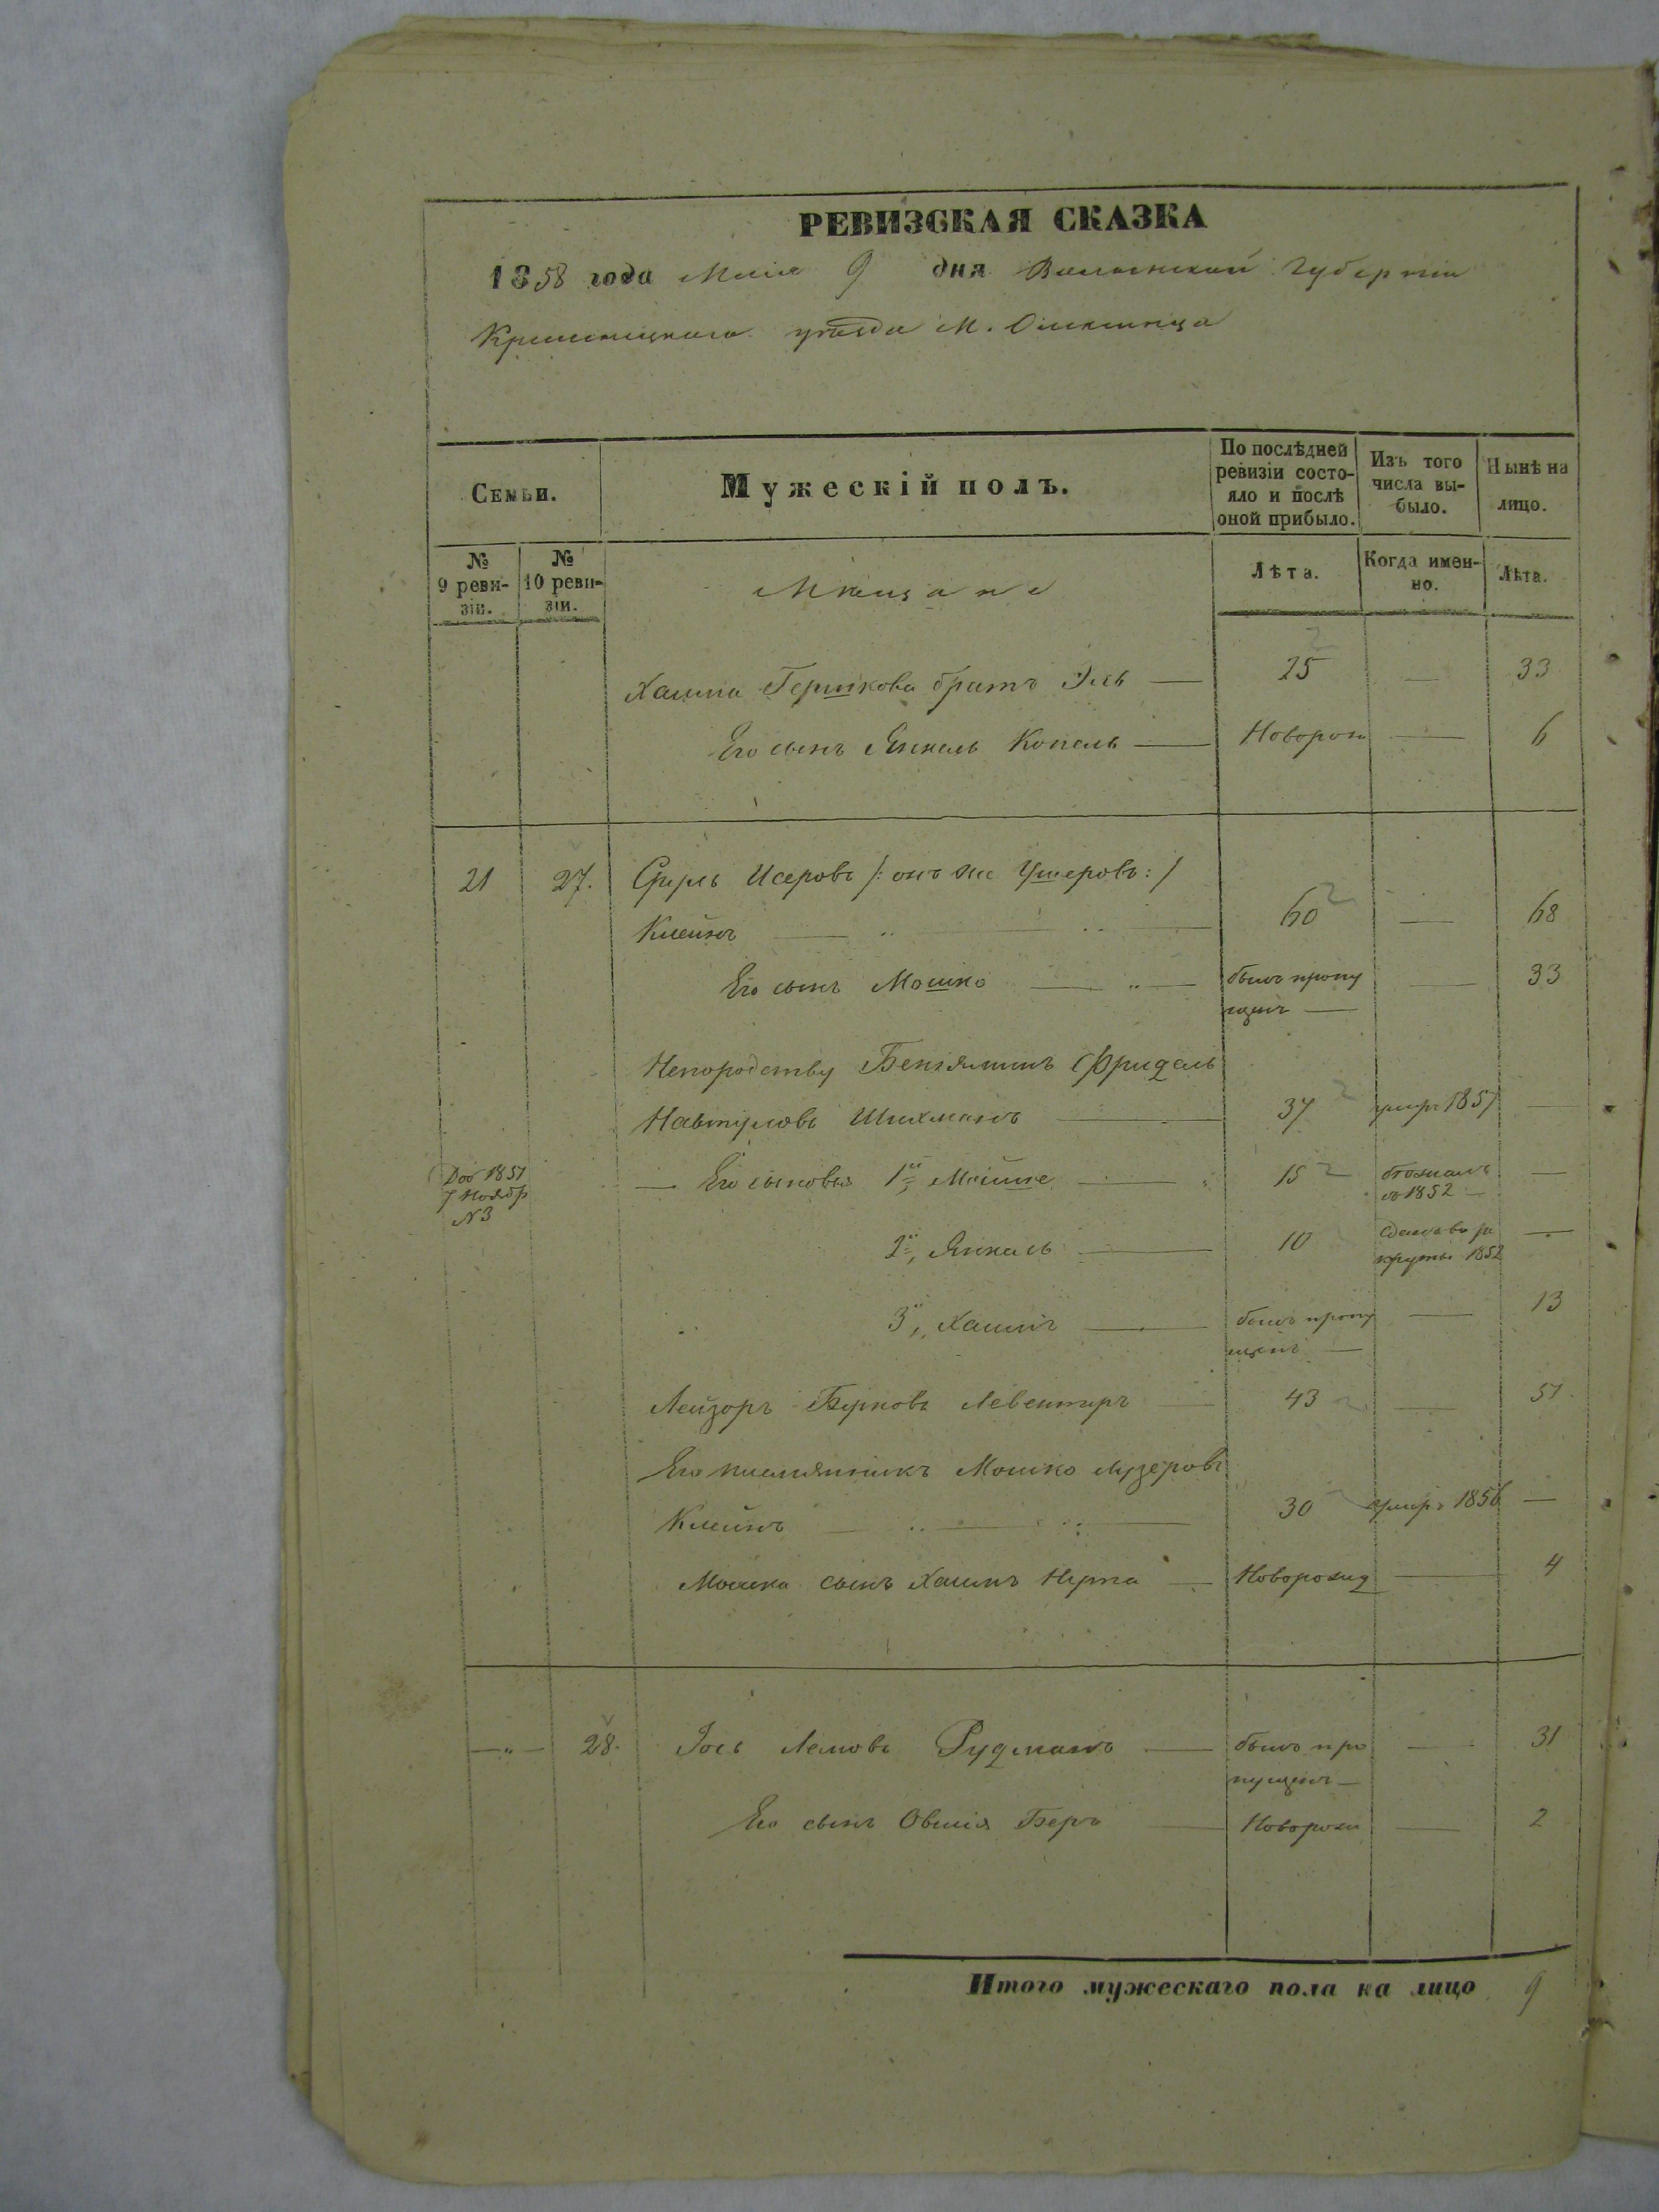 РЕВИЗСКАЯ СКАЗКА
1858 года Маія 9 дня Волынской Губерніи
Кременецкаго уѣзда М. Олексинца
Семьи.
Мужескій полъ.
По послѣдней ревизіи состо-
яло и послѣ
оной прибыло.
Изъ того
числа вы-
было.
Нынѣ на
лицо.
№
9 реви-
зіи.
№
10 реви-
зіи.
Мѣщане
Лѣта.
Когда имен-
но.
Лѣта.
Хаима Гершкова братъ Эль — 25 — 33
Его сынъ Янкель Копель — Новорож — 6
21 27. Сруль Исеровъ /: онъ же Ушеровъ :/
Клейнъ — 60 — 68
Его сынъ Мошко — былъ пропу
щенъ — 33
Непородству Беніяминъ Фридель
Навтуловъ Шихманъ — 37 умеръ 1857 —
Доб 1851
7 Ноябр
№ 3
— Его сыновья 1й, Мойше — 15 бѣжалъ
въ 1852 —
2й, Янкель — 10 сданъ въ ре
круты 1852 —
3й, Хаимъ — былъ пропу
щенъ — 13
Лейзоръ Берковъ Левентиръ 43 — 51
Его племянникъ Мошко Лузеровъ
Клейнъ — 30 умеръ 1856 —
Мошка сынъ Хаимъ — Новорожд — 4
— " — 28. Іось Лейбовъ Рудманъ — былъ про
пущенъ — 31
Его сынъ Овшія Беръ — Новорож — 2
Итого мужескаго пола на лицо 9